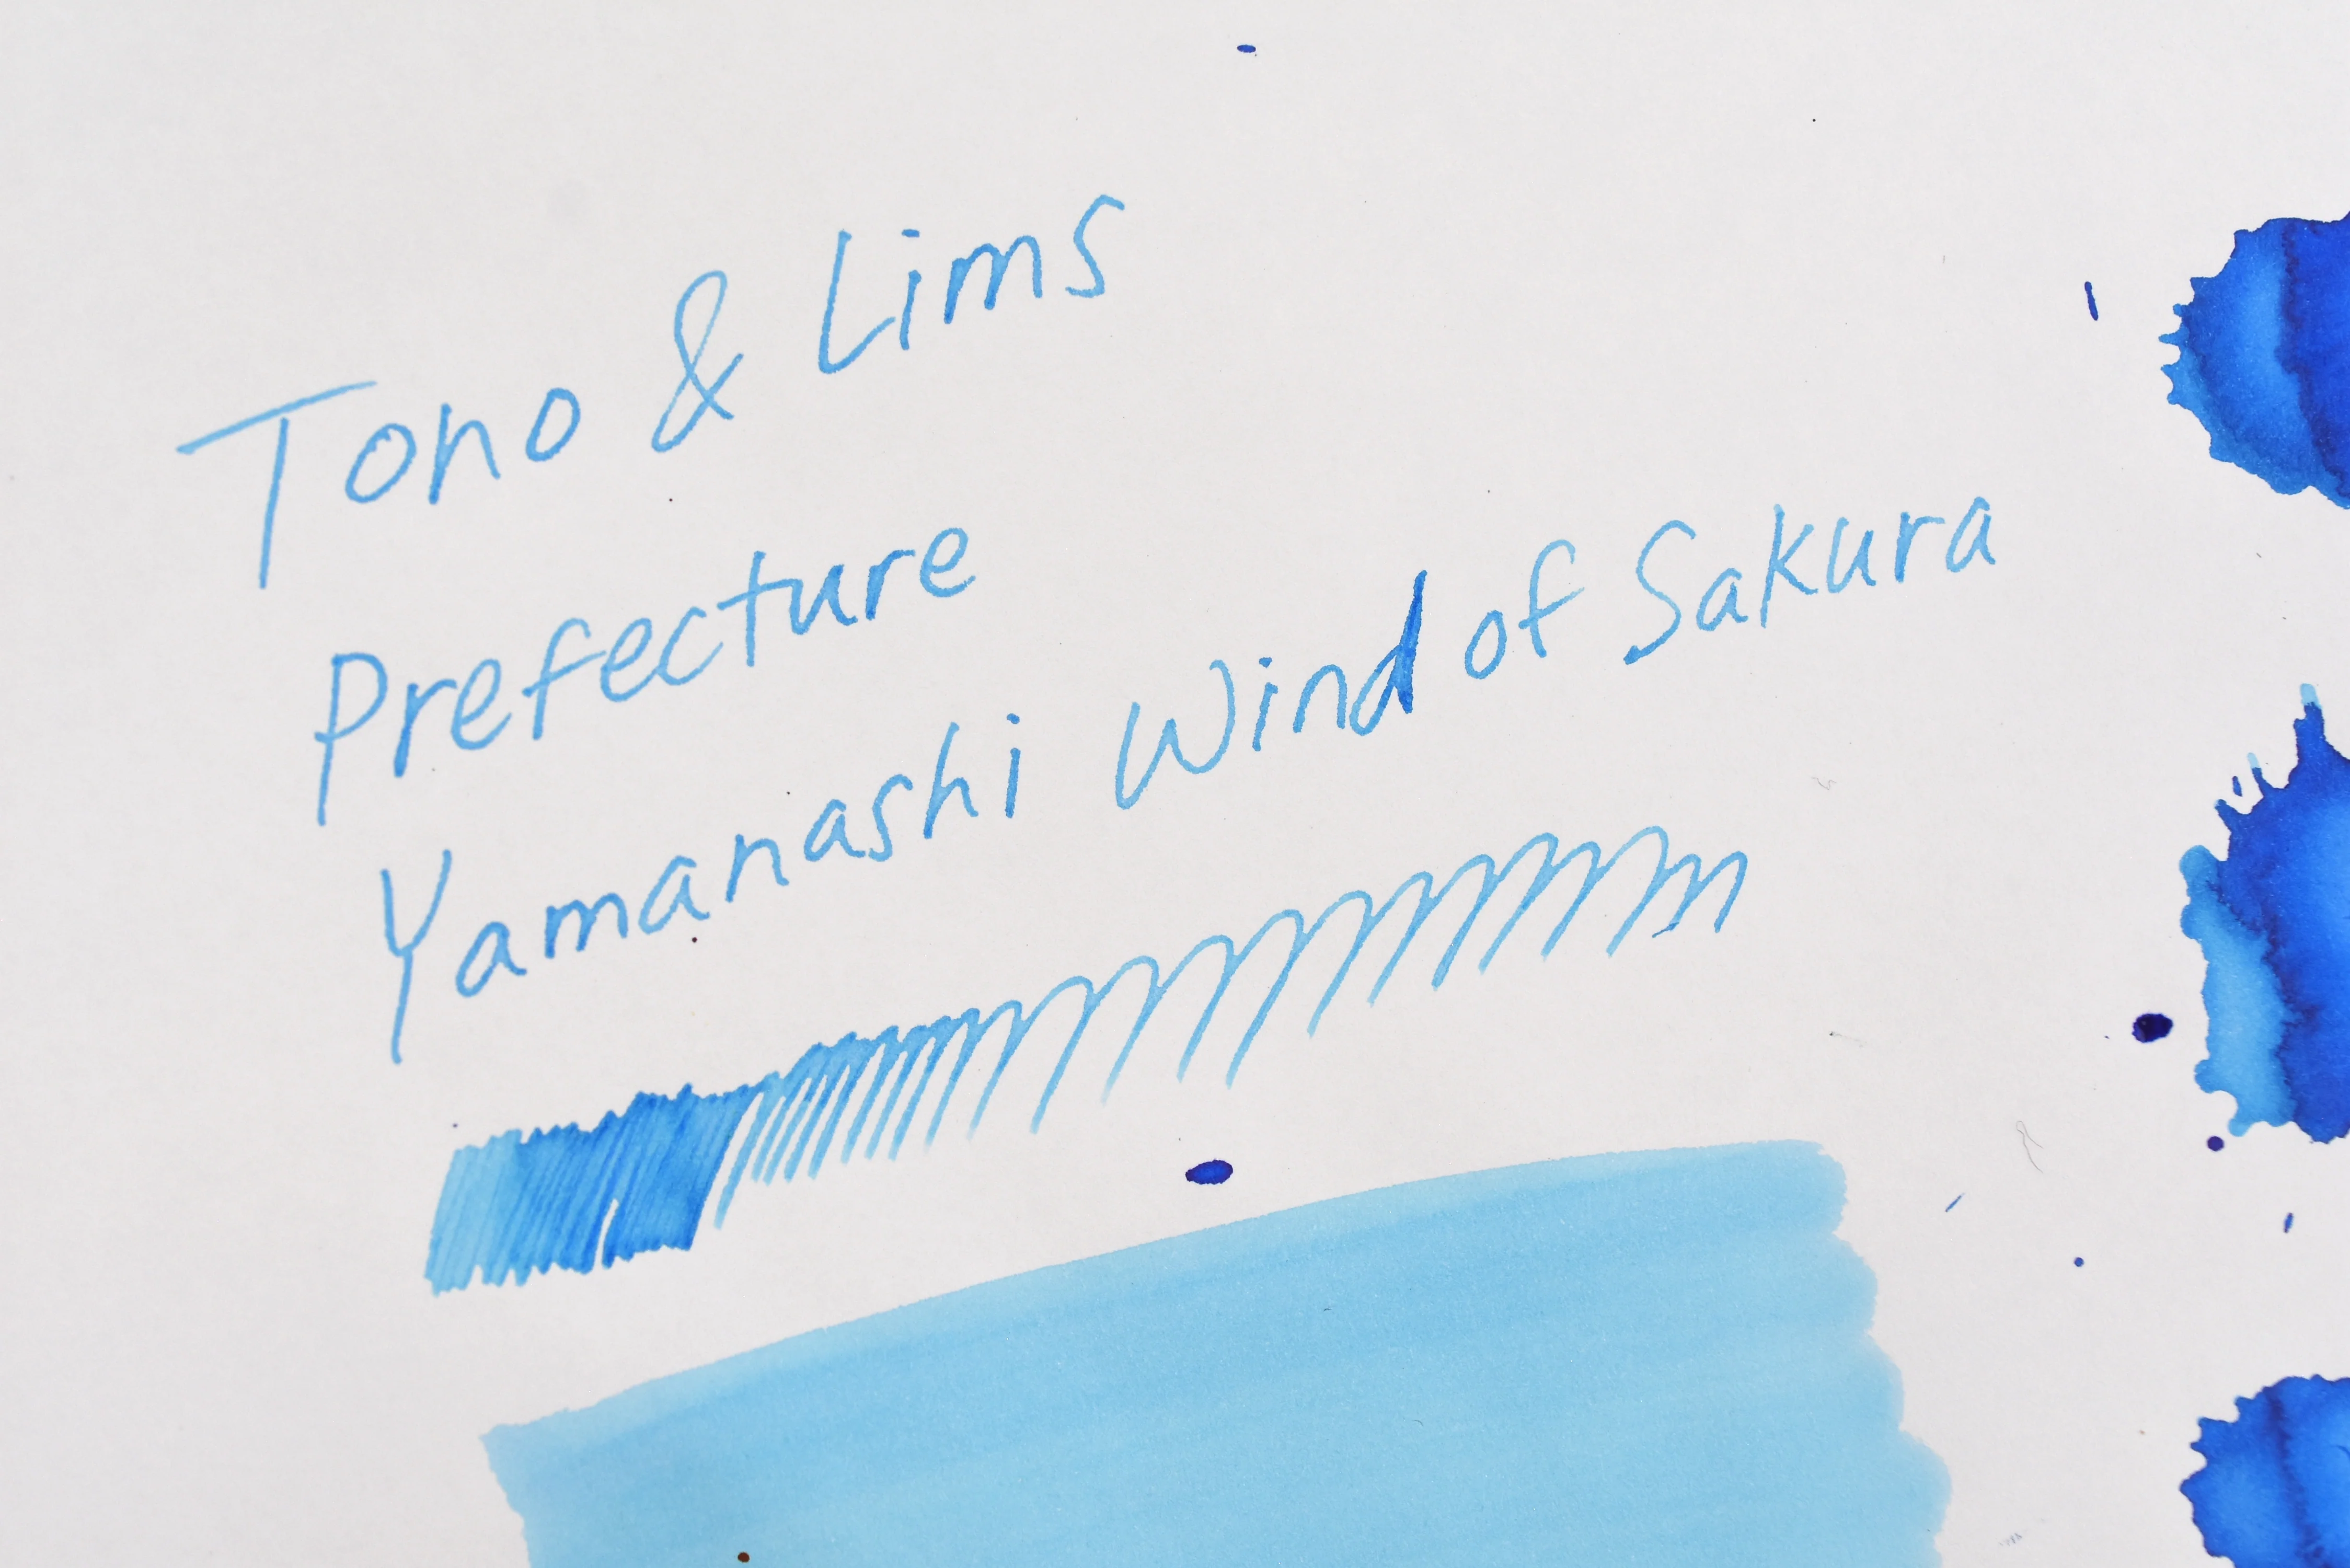 Tono & Lims
Prefecture
Yamanashi Wind of Sakura